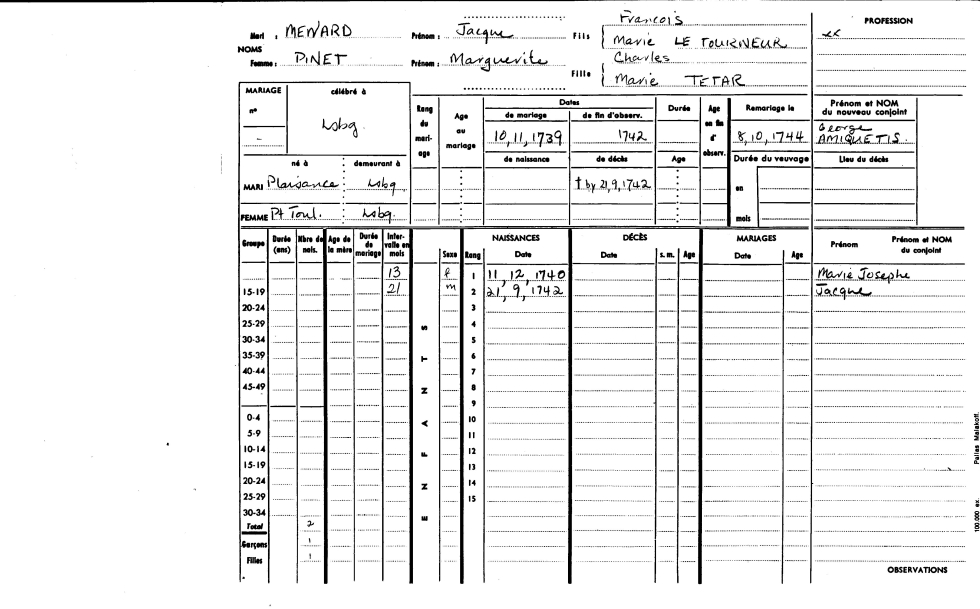 Mari : MENARD Prénom : Jacque Fils { Francois
Marie LE TOURNEUR
NOMS
Femme : PINET Prénom : Marguerite Fille { Charles
Marie TETAR
PROFESSION
xx
MARIAGE célébré à
n° Lsbg.
-
né à demeurant à
MARI Plaisance Lsbg
FEMME Pt Toul. Lsbg.
Rang du mari-age
Age au mariage
Dates
de mariage de fin d'observ.
10, 11, 1739 1742
de naissance de décès
† by 21, 9, 1742
Durée
Age
Age en fin d' observ.
Remariage le
8, 10, 1744
Durée du veuvage
en
mois
Prénom et NOM
du nouveau conjoint
George
AMIQUETIS.
Lieu du décès
Groupe Durée (ans) Nbre de nais. Age de la mère Durée de mariage Inter-valle en mois Sexe Rang NAISSANCES Date DÉCÈS Date s. m. Age MARIAGES Date Age Prénom Prénom et NOM du conjoint
ENFANTS
13 f 1 11, 12, 1740 Marie Josephe
15-19 21 m 2 21, 9, 1742 Jacque
20-24 3
25-29 4
30-34 5
35-39 6
40-44 7
45-49 8
9
0-4 10
5-9 11
10-14 12
15-19 13
20-24 14
25-29 15
30-34
Total 2
Garçons 1
Filles 1
OBSERVATIONS
100.000 ex. Pallas Malakoff.